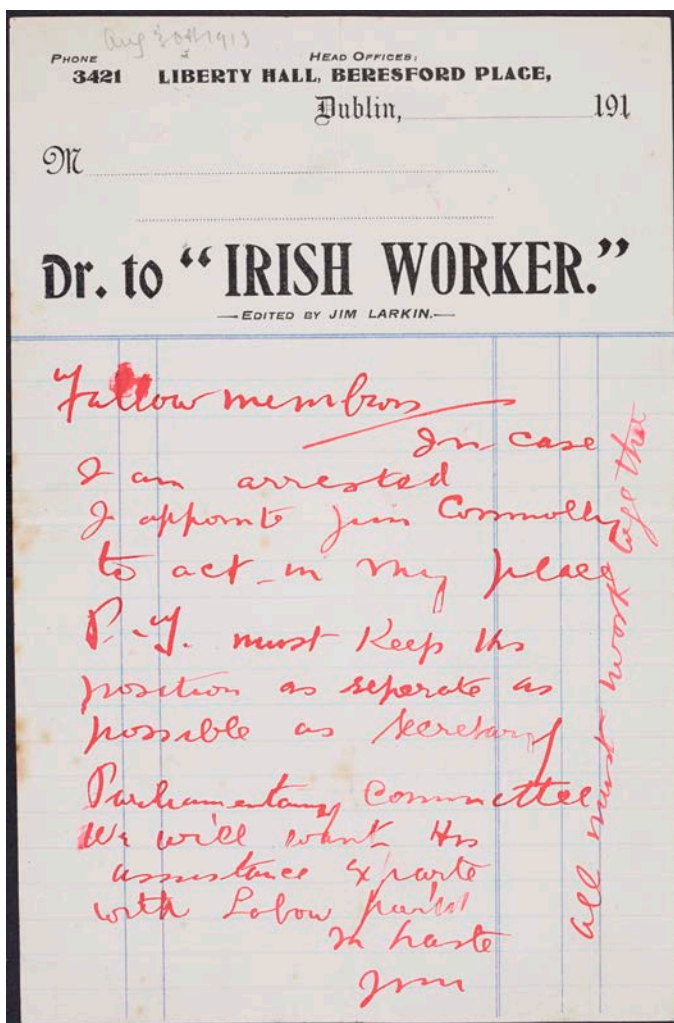 Aug 30th 1913
PHONE
3421
HEAD OFFICES:
LIBERTY HALL, BERESFORD PLACE,
Dublin, 191
M
Dr. to "IRISH WORKER."
—EDITED BY JIM LARKIN.—
Fellow members
In case
I am arrested
I appoint Jim Connolly
to act in my place
P.T. must Keep his
position as seperate as
possible as Secretary
Parliamentary Committee
We will want His
assistance Exparte
with Labour
In haste
Jim
all must work together